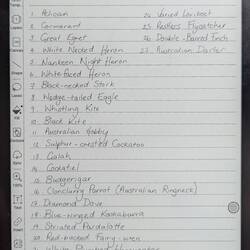 1. Pelican
2. Cormorant
3. Great Egret
4. White Necked Heron
5. Nankeen Night Heron
6. White-faced Heron
7. Black-necked Stork
8. Wedge-tailed Eagle
9. Whistling Kite
10. Black Kite
11. Australian Hobby
12. Sulphur-crested Cockatoo
13. Galah
14. Cockatiel
15. Budgerigar
16. Cloncurry Parrot (Australian Ringneck)
17. Diamond Dove
18. Blue-winged Kookaburra
19. Striated Pardalote
20. Red-backed Fairy-wren
24. Varied Lorikeet
25. Restless Flycatcher
26. Double-Barred Finch
27. Australian Darter